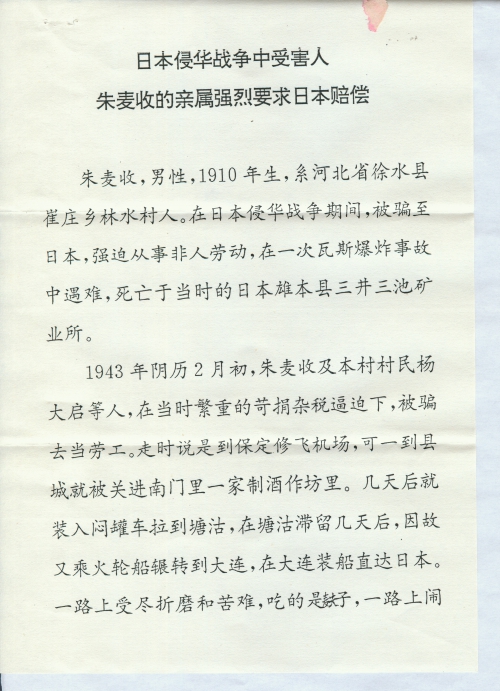 日本侵华战争中受害人
朱麦收的亲属强烈要求日本赔偿
朱麦收,男性,1910年生,系河北省徐水县
崔庄乡林水村人。在日本侵华战争期间,被骗至
日本,强迫从事非人劳动,在一次瓦斯爆炸事故
中遇难,死亡于当时的日本雄本县三井三池矿
业所。
1943年阴历2月初,朱麦收及本村村民杨
大启等人,在当时繁重的苛捐杂税逼迫下,被骗
去当劳工。走时说是到保定修飞机场,可一到县
城就被关进南门里一家制酒作坊里。几天后就
装入闷罐车拉到塘沽,在塘沽滞留几天后,因故
又乘火轮船辗转到大连,在大连装船直达日本。
一路上受尽折磨和苦难,吃的是麸子,一路上闹